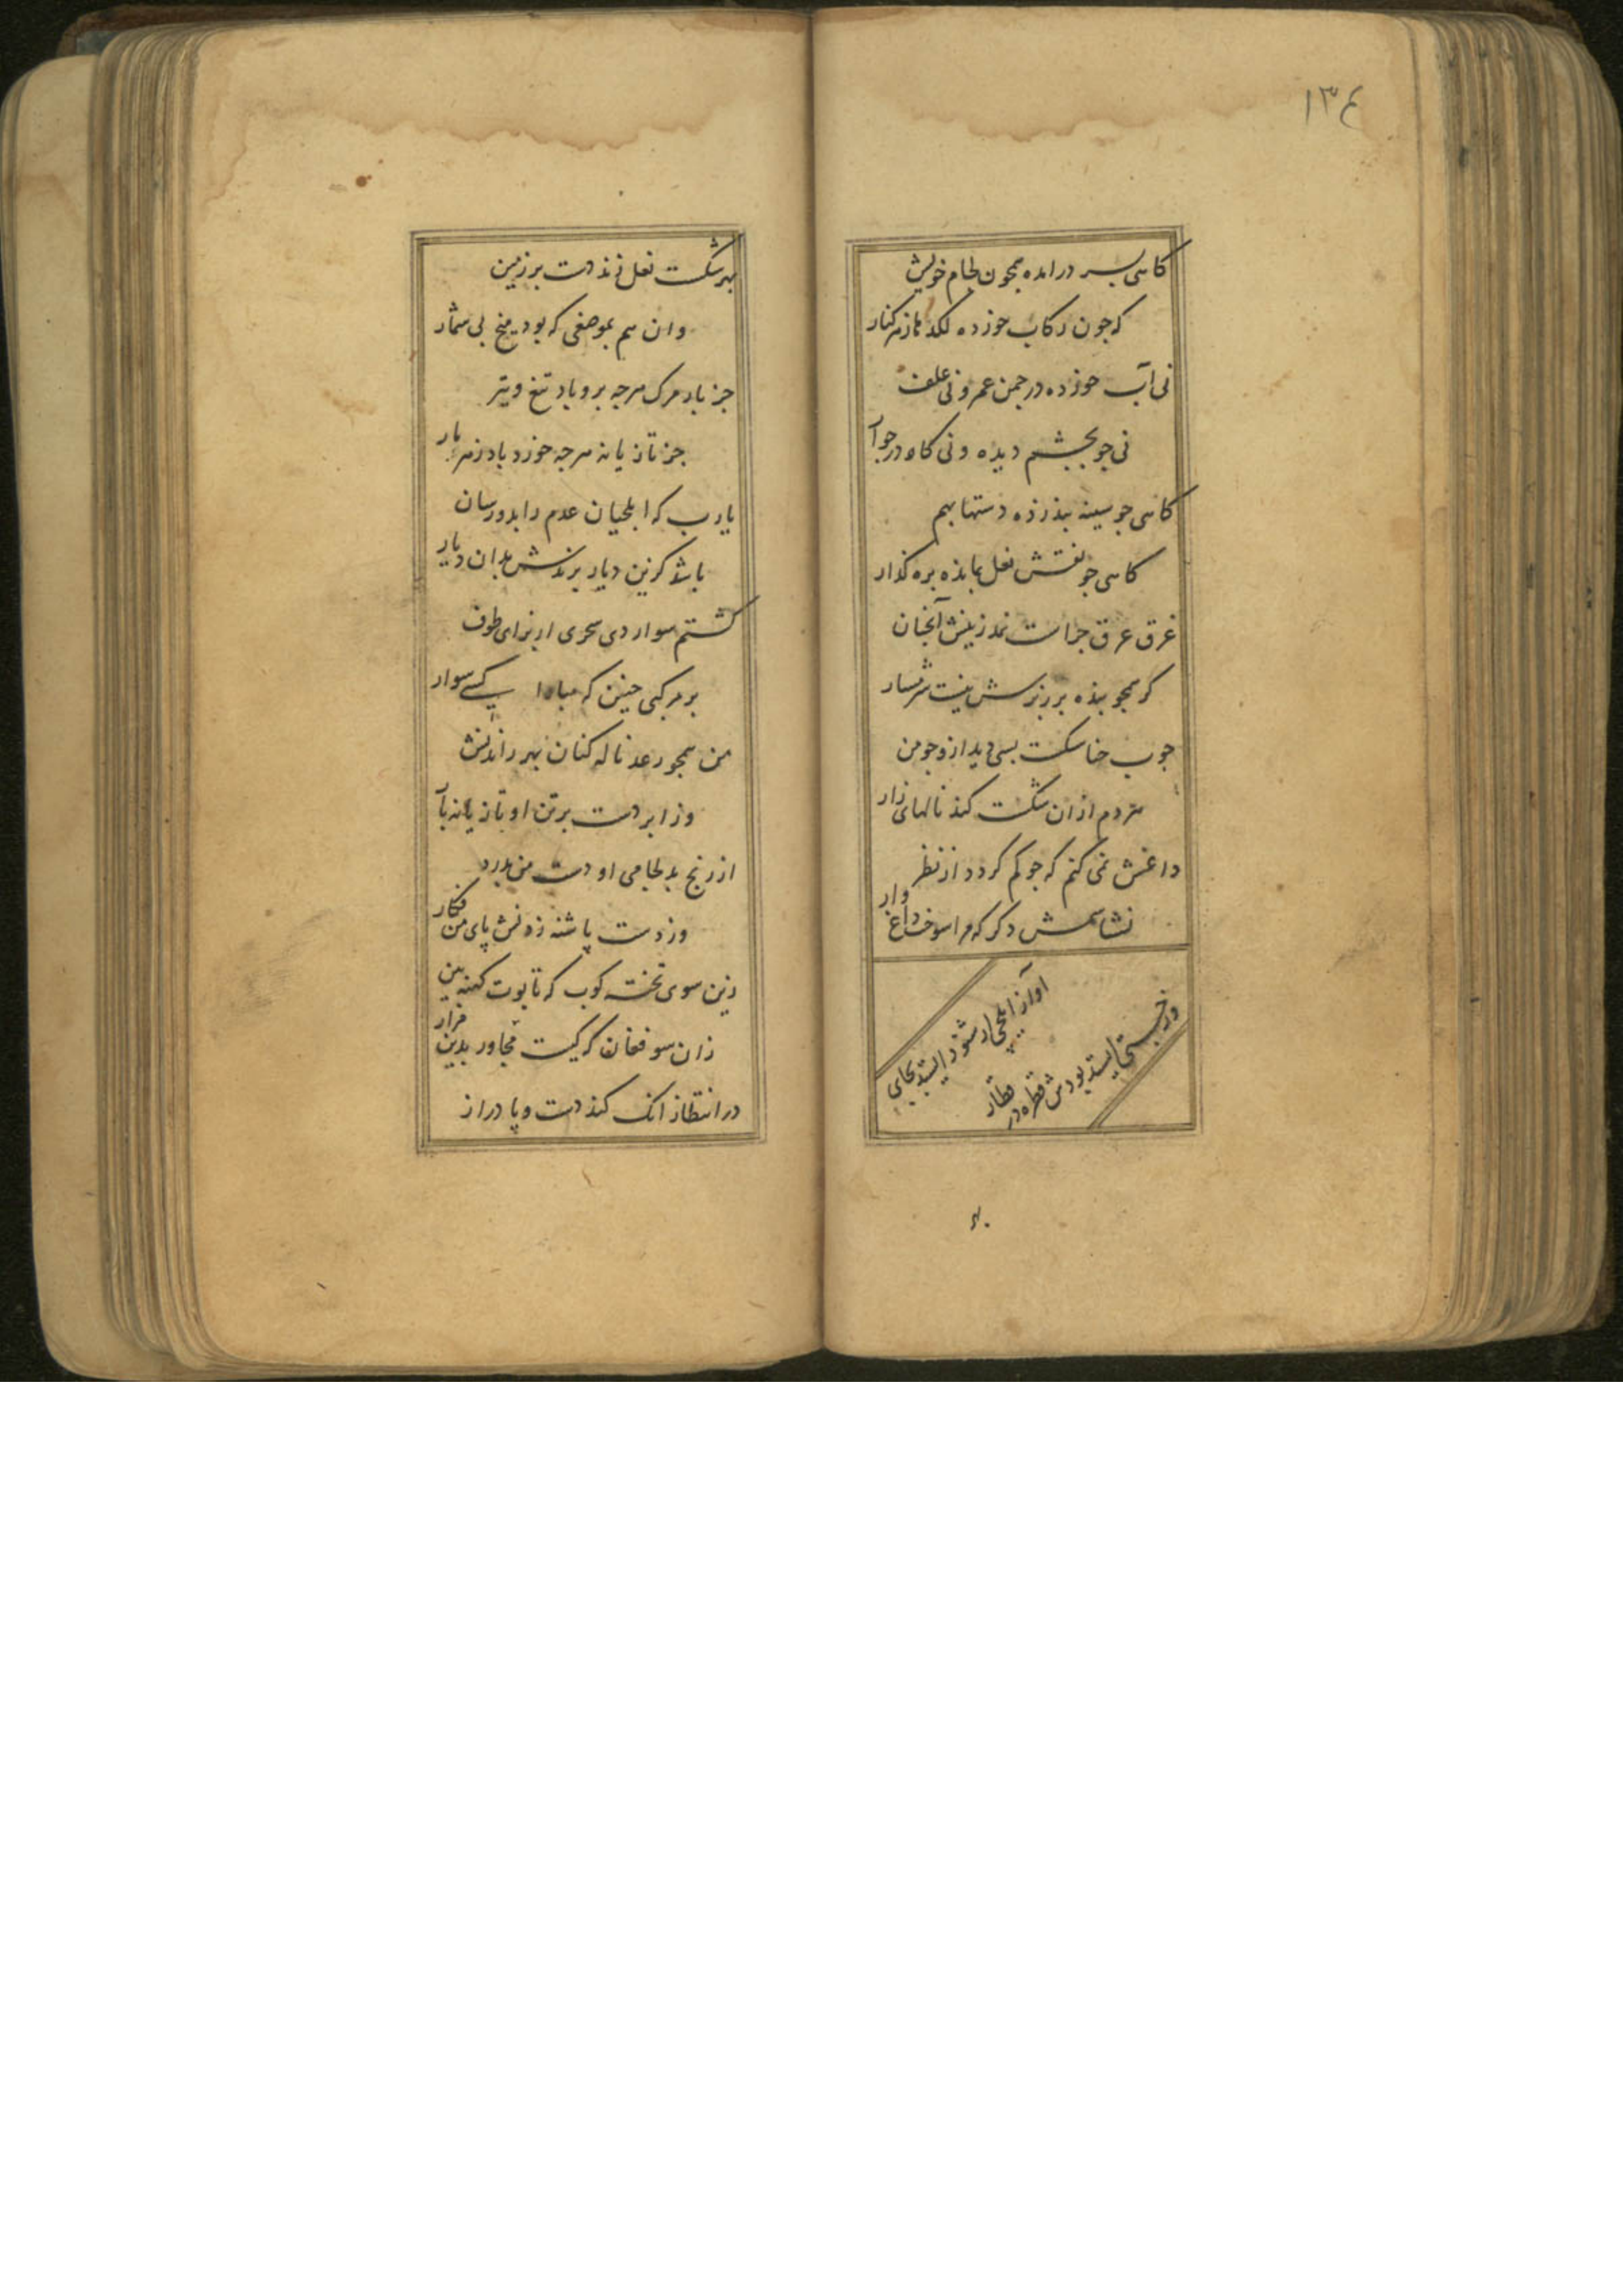 ۱۳٤
کاهی بسر درامده همچون لجام خویش
که جون رکاب خورده لکدها ز هر کنار
نی آب خورده در جمن عمر و نی علف
نی جو بجشم دیده و نی کاه در جوار
کاهی جو سینه بند زده دستها بهم
کاهی جو نقش نعل بمانده بره کذار
غرق عرق جراست نمد زینش آنجنان
کر همجو بنده بر زبرش نیست شرمسار
جوب خناسکت بسی دید از وجو من
هر دم از ان شکست کند نالهای زار
داغش نمی کنم که جو کم کردد از نظر
نشناسمش دکر که مرا سوخت داغ وار
آواز ایلچی ار شنود ایستد بجای
ور خسبتی ایستد بودش قطره در قطار
بهر
بهر شکست نعل زند دست بر زمین
وان هم بموضعی که بود میخ بی شمار
جز باد مرک هرجه برو باد تیغ و تیر
جز تازیانه هرجه خورد باد زهر بار
یارب که ایلجیان عدم را بدو رسان
باشد کزین دیار برندش بدان دیار
کشتم سوار دی سحری از برای طوف
بر مرکبی جنین که مبادا کسی سوار
من همجو رعد ناله کنان بهر راندنش
وز ابر دست بر تن او تازیانه بار
از رنج بد لجامی او دست من بدرد
وز دست پاشنه زدنش پای من فکار
زین سوی تخته کوب که تابوت کهنه بین
زان سو فغان که کیست مجاور بدین مزار
در انتظار انک کند دست و پا دراز